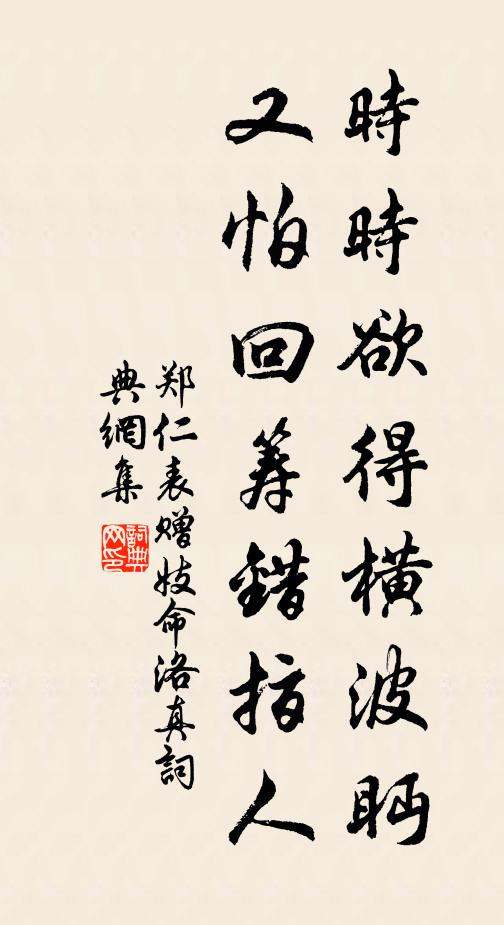 時時欲得橫波眄
又怕回筹錯指人
郑仁表赠妓命洛真詞
典網集
詞典
网印